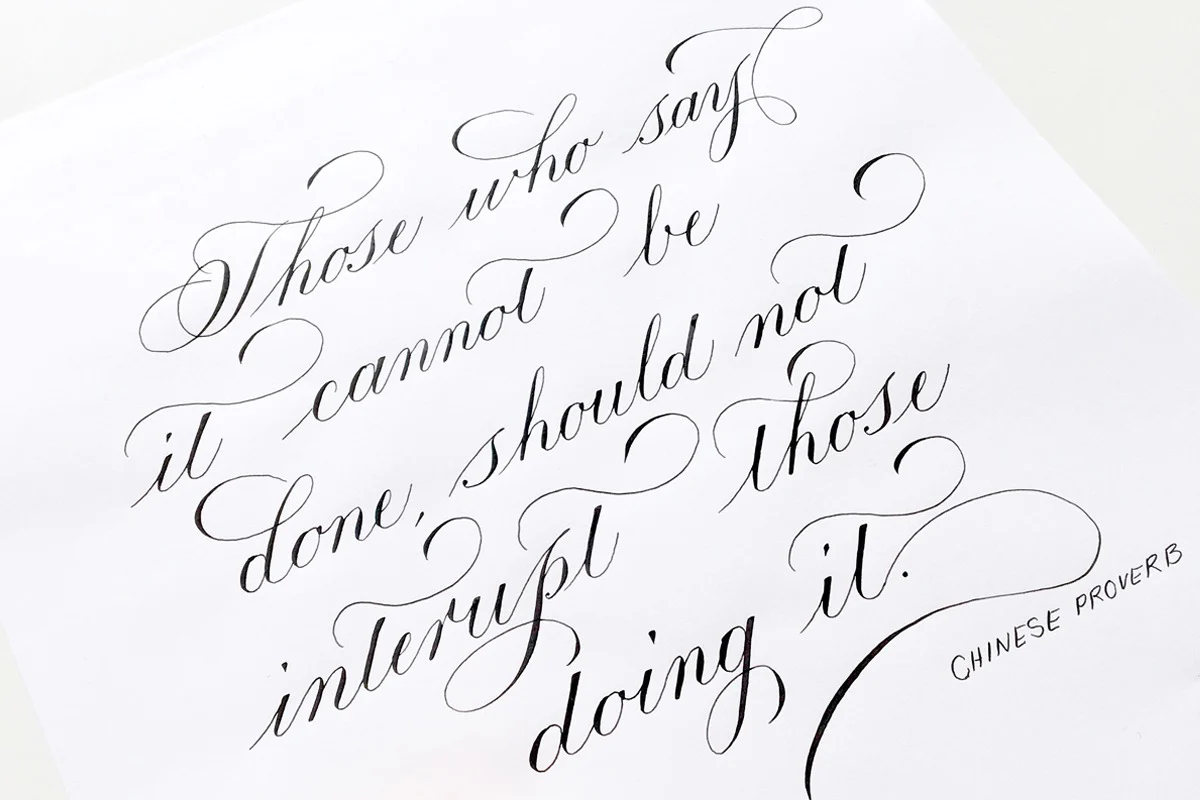 Those who say
it cannot be
done, should not
interupt those
doing it.
CHINESE PROVERB